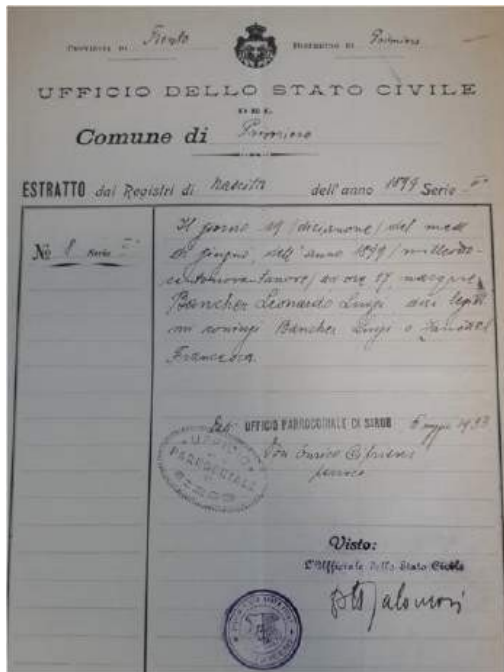 PROVINCIA DI Trento DISTRETTO DI Primiero
UFFICIO DELLO STATO CIVILE
DEL
Comune di Primiero
ESTRATTO dai Registri di Nascita dell'anno 1899 Serie I
No 8 Serie I
Il giorno 19 (diciannove) del mese
di giugno, dell'anno 1899 (milleotto-
centonovantanove) ad ore 17, nacque
Bancher Leonardo Luigi dai legitti
mi coniugi Bancher Luigi e
Francesca.
Dall' UFFICIO PARROCCHIALE DI SIROR 6 maggio 1933
Don Enrico
parroco
UFFICIO
PARROCCHIALE
Visto:
L'Ufficiale dello Stato Civile